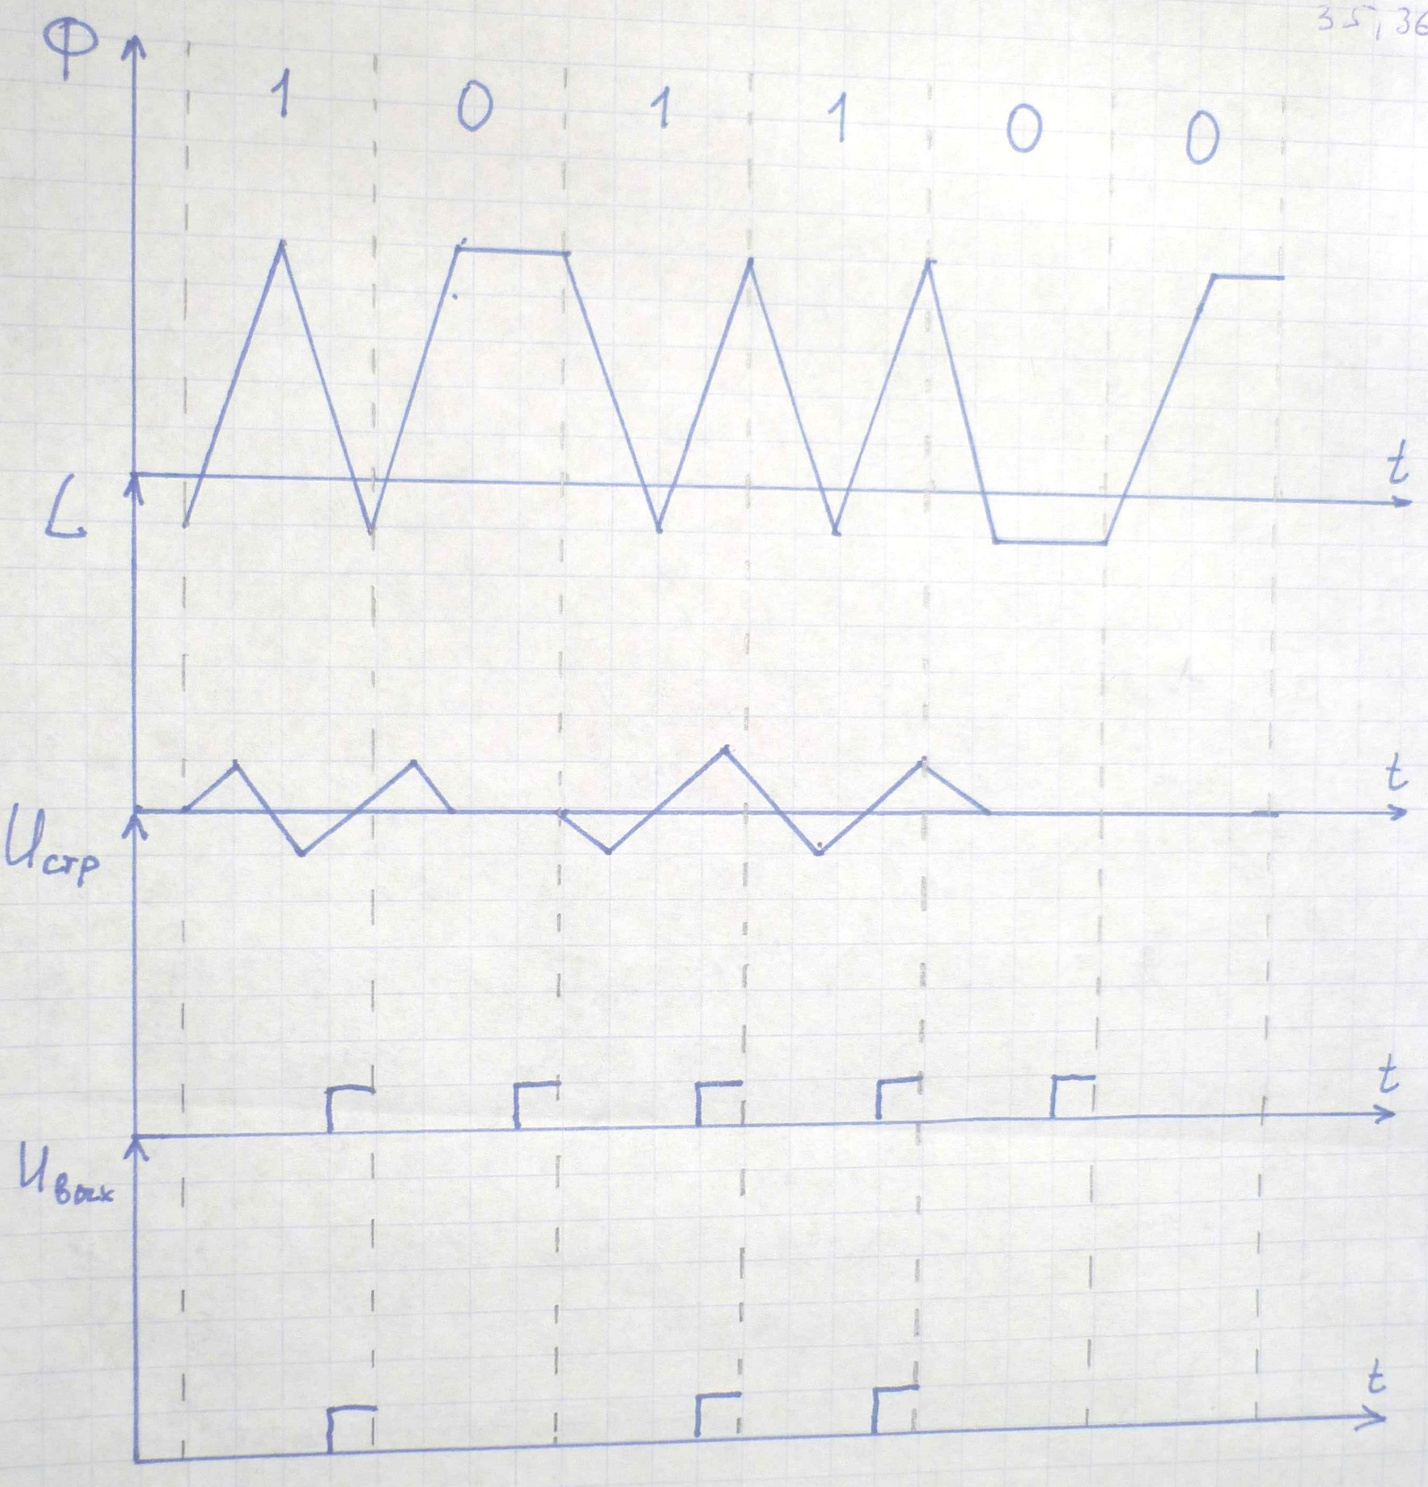 35,36
Ф
1 0 1 1 0 0
t
L
t
Uстр
t
Uвых
t